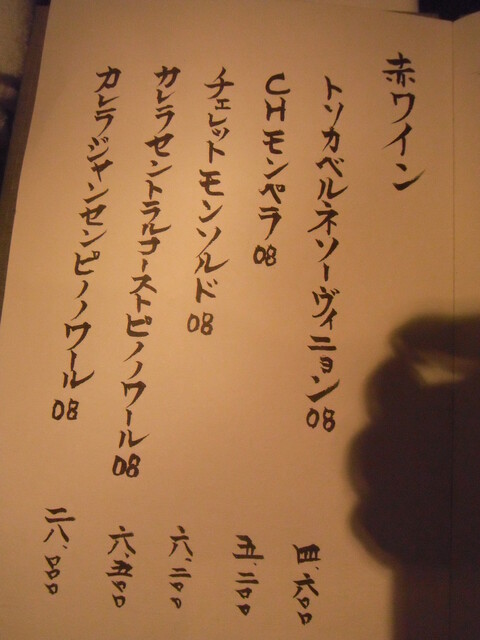 赤ワイン
トソカベルネソーヴィニョン08
四、六〇〇
CHモンペラ08
五、二〇〇
チェレットモンソルド08
六、二〇〇
カレラセントラルコーストピノノワール08
六、五〇〇
カレラジャンセンピノノワール08
二八、〇〇〇